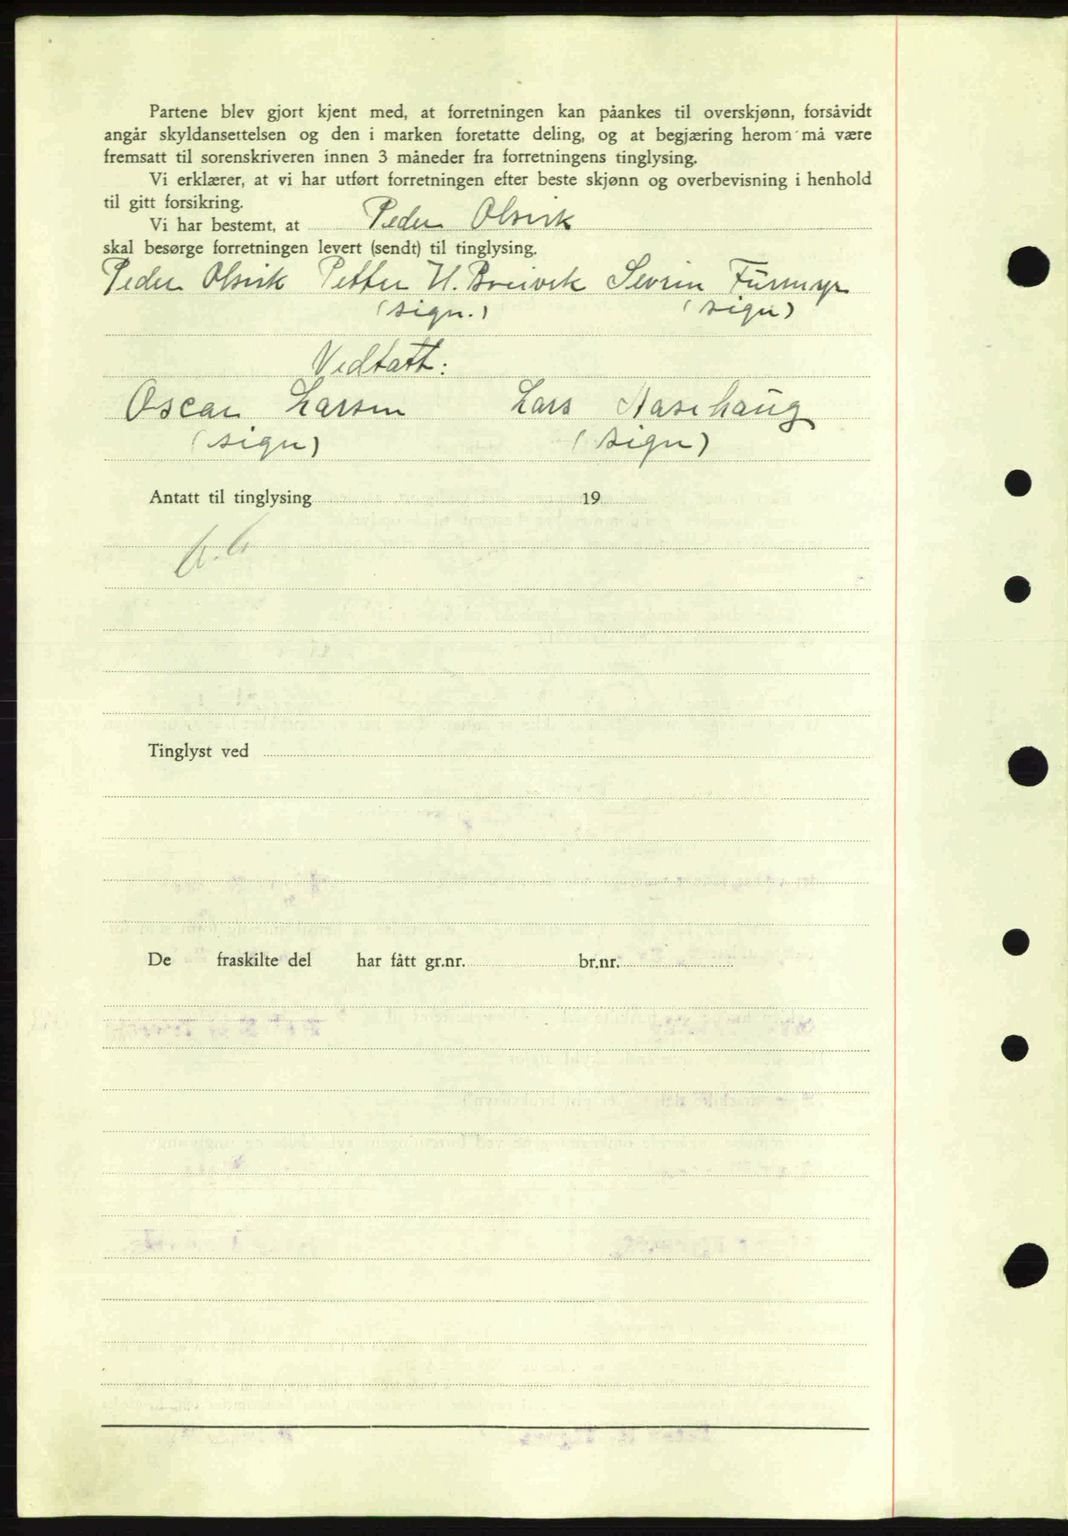 Partene blev gjort kjent med, at forretningen kan påankes til overskjønn, forsåvidt
angår skyldansettelsen og den i marken foretatte deling, og at begjæring herom må være
fremsatt til sorenskriveren innen 3 måneder fra forretningens tinglysing.
Vi erklærer, at vi har utført forretningen efter beste skjønn og overbevisning i henhold
til gitt forsikring.
Vi har bestemt, at Peder Olsvik
skal besørge forretningen levert (sendt) til tinglysing.
Peder Olsvik Petter H. Breivik Sevrin Furmyr
(sign.) (sign)
Vedtatt:
Oscar Larsen Lars Aasehaug
(sign) (sign)
Antatt til tinglysing 19
Tinglyst ved
De fraskilte del har fått gr.nr. br.nr.